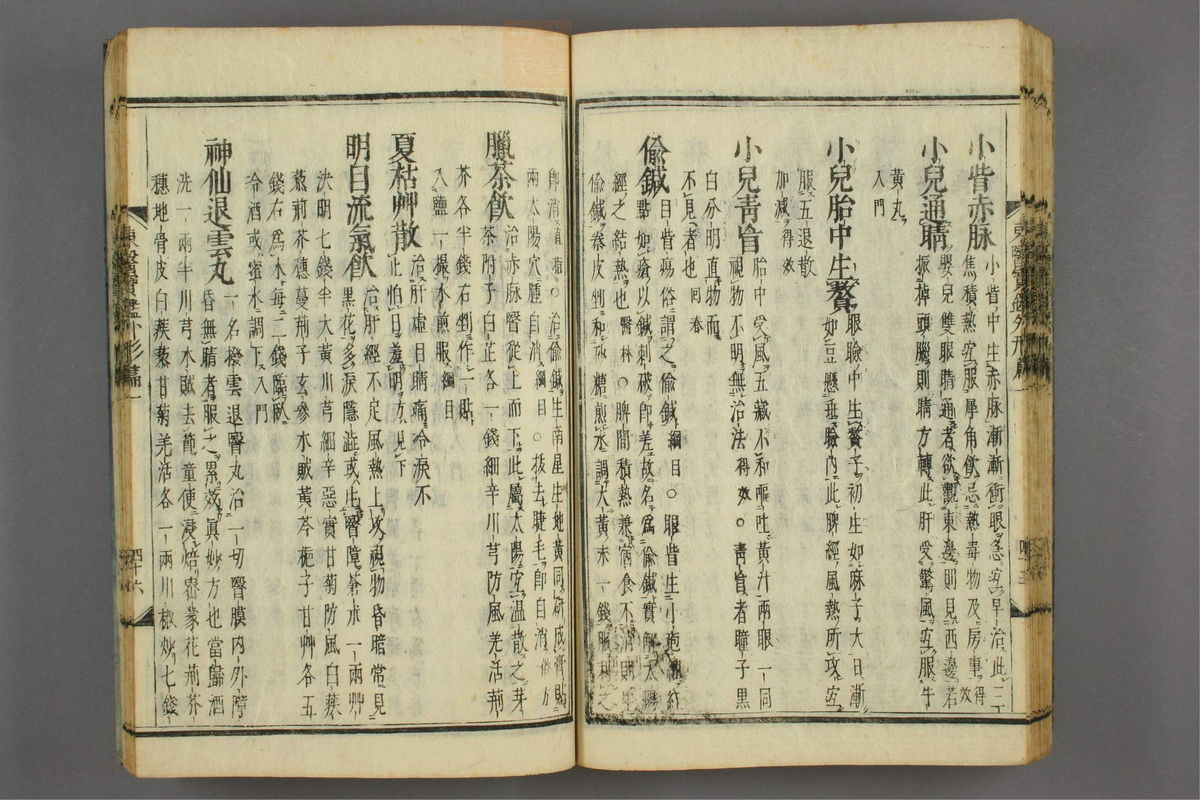 小眥赤脉 小眥中生赤脉漸漸衝眼急宜早治此三
焦積熱宜服犀角飮忌熱毒物及房事得效
小兒通睛 嬰兒雙眼睛通者欲觀東邊則見西邊若
振掉頭腦則睛方轉此肝受驚風宜服牛
黃丸入門
小兒胎中生贅 眼瞼中生贅子初生如麻子大日漸
如豆懸垂瞼內此脾經風熱所攻宜
服五退散
加減得效
小兒靑盲 胎中受風五藏不和嘔吐黃汁兩眼一同
視物不明無治法得效○靑盲者瞳子黑
白分明直物而
不見者也回春
偸鍼 目眥瘍俗謂之偸鍼綱目○眼眥生小疱
點如瘡以鍼刺破卽差故名爲偸鍼實解太陽
經之結熱也醫林○脾間積熱兼宿食不消則生
偸鍼秦皮剉和砂糖煎水調大黃末一錢服利之
卽消直指○治偸鍼生南星生地黃同硏成膏貼
兩太陽穴腫自消綱目○拔去睫毛卽自消俗方
臘茶飮 治赤脉瞖從上而下此屬太陽宜溫散之芽
茶附子白芷各一錢細辛川芎防風羌活荊
芥各半錢右剉作一貼
入鹽一撮水煎服綱目
夏枯艸散 治肝虛目睛痛冷淚不
止怕日羞明方見下
明目流氣飮 治肝經不足風熱上攻視物昏暗常見
黑花多淚隱澁或生瞖障蒼朮一兩艸
決明七錢半大黃川芎細辛惡實甘菊防風白蒺
藜荊芥穗蔓荊子玄參木賊黃芩梔子甘艸各五
錢右爲末每二錢臨臥
冷酒或蜜水調下入門
神仙退雲丸 一名撥雲退瞖丸治一切瞖膜內外障
昏無睛者服之累效眞妙方也當歸酒
洗一兩半川芎木賊去節童便浸焙密蒙花荊芥
穗地骨皮白蒺藜甘菊羌活各一兩川椒炒七錢
東醫寶鑑外形篇一
四十六